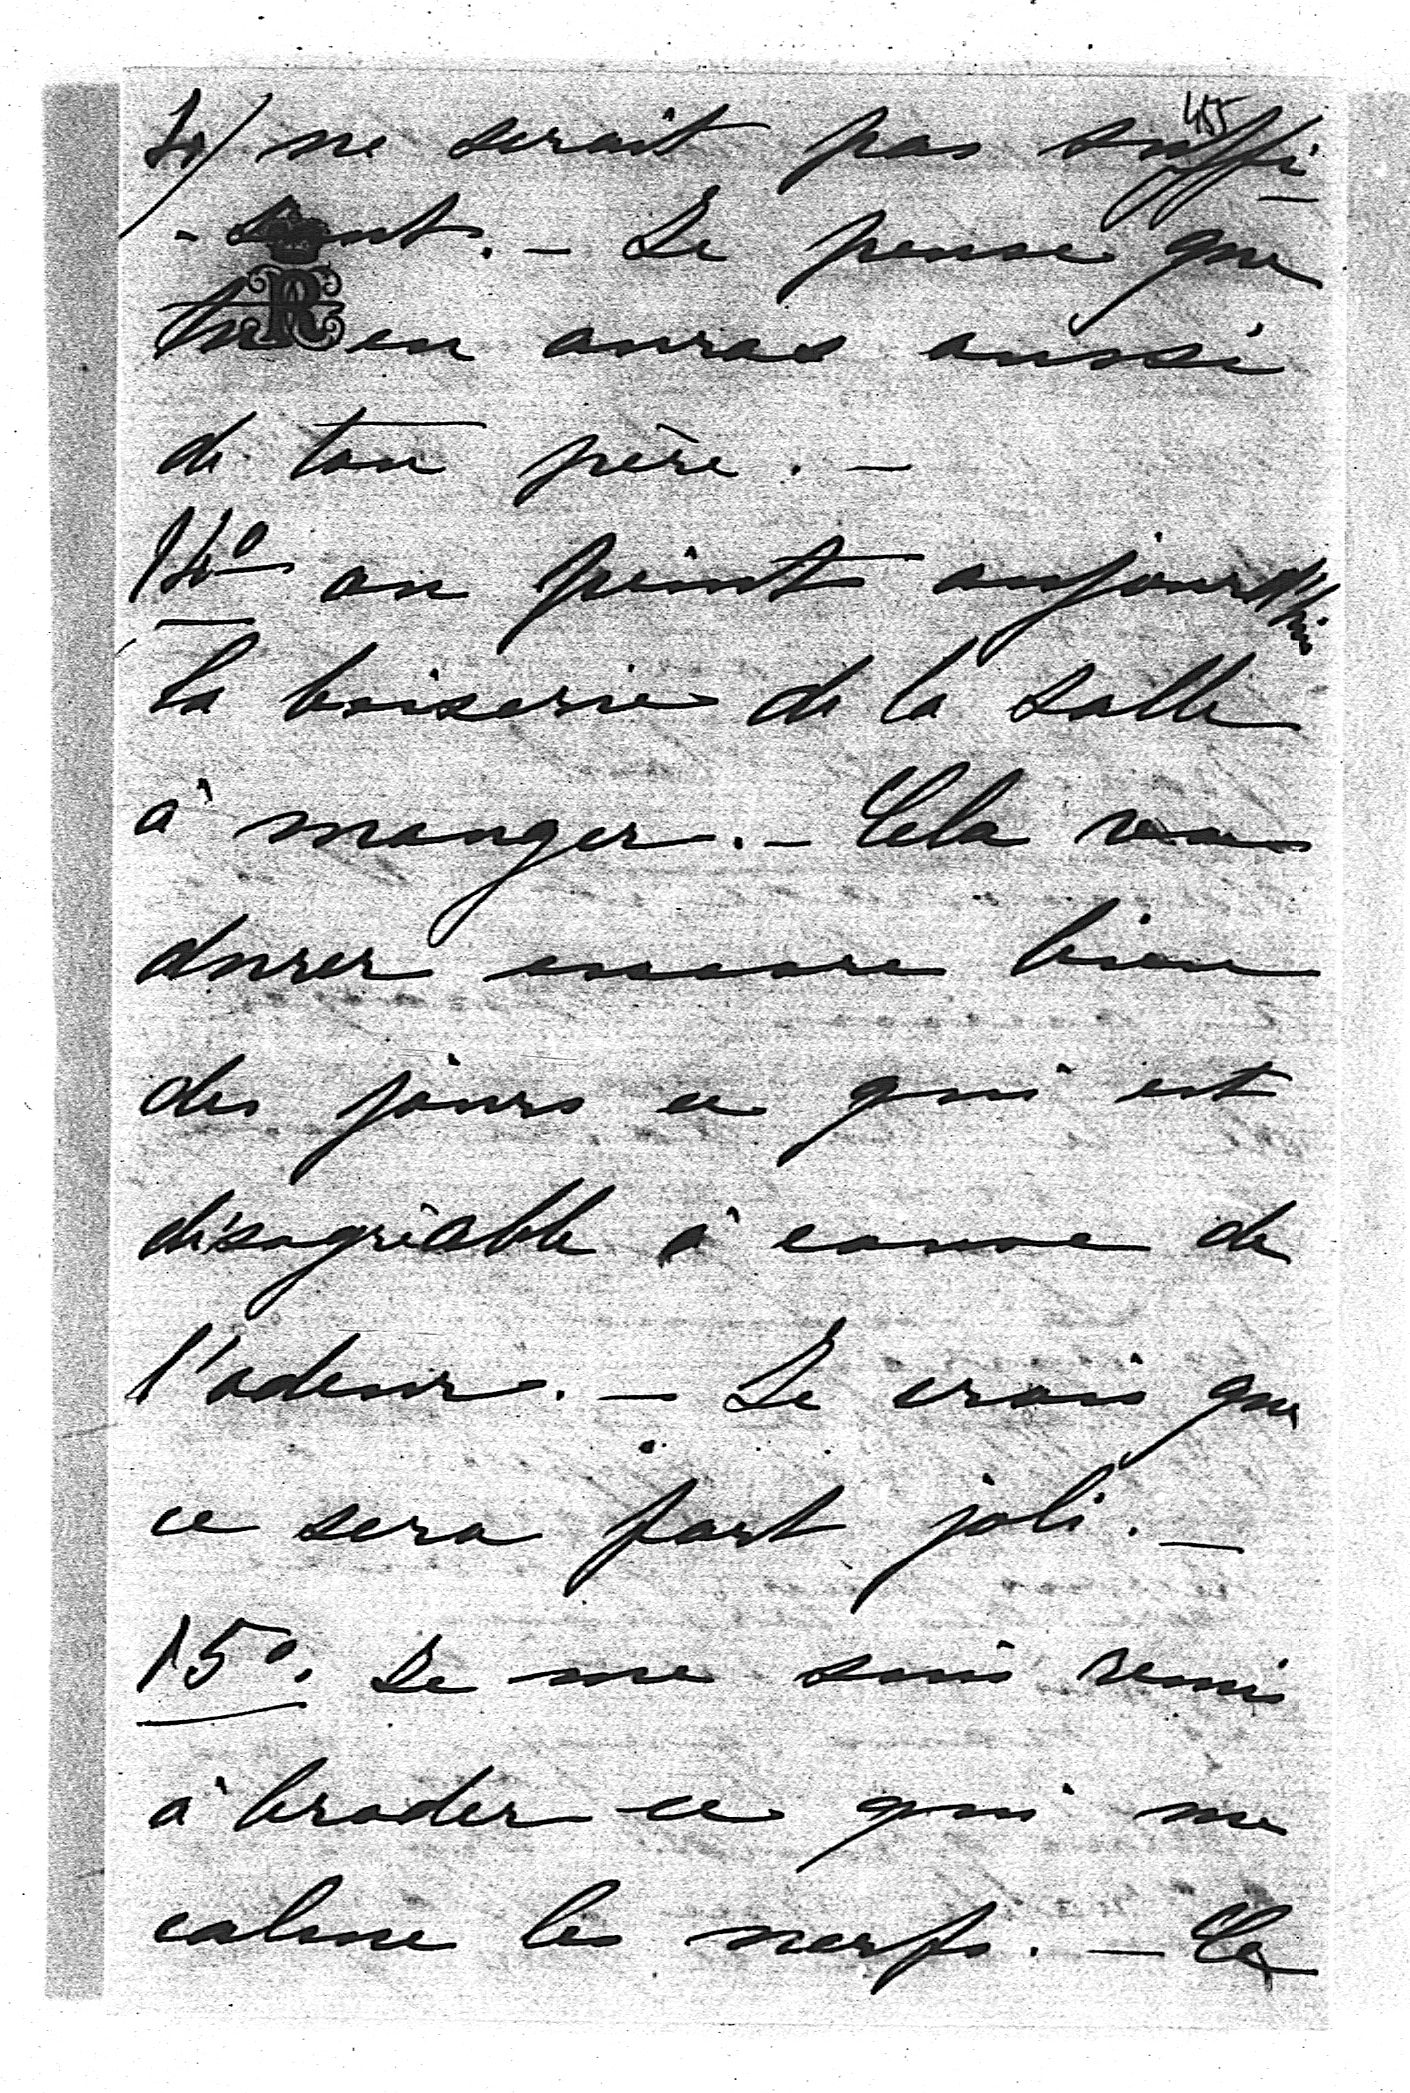 455
4/ ne serait pas suffi-
-sant. - Je pense que
tu en auras aussi
de ton père. -
14º on peint aujourd'hui
la boiserie de la salle
à manger. - Cela va
durer encore bien
des jours ce qui est
désagréable à cause de
l'odeur. - Je crois que
ce sera fort joli. -
15º. Je me suis remis
à broder ce qui me
calme les nerfs. - Le